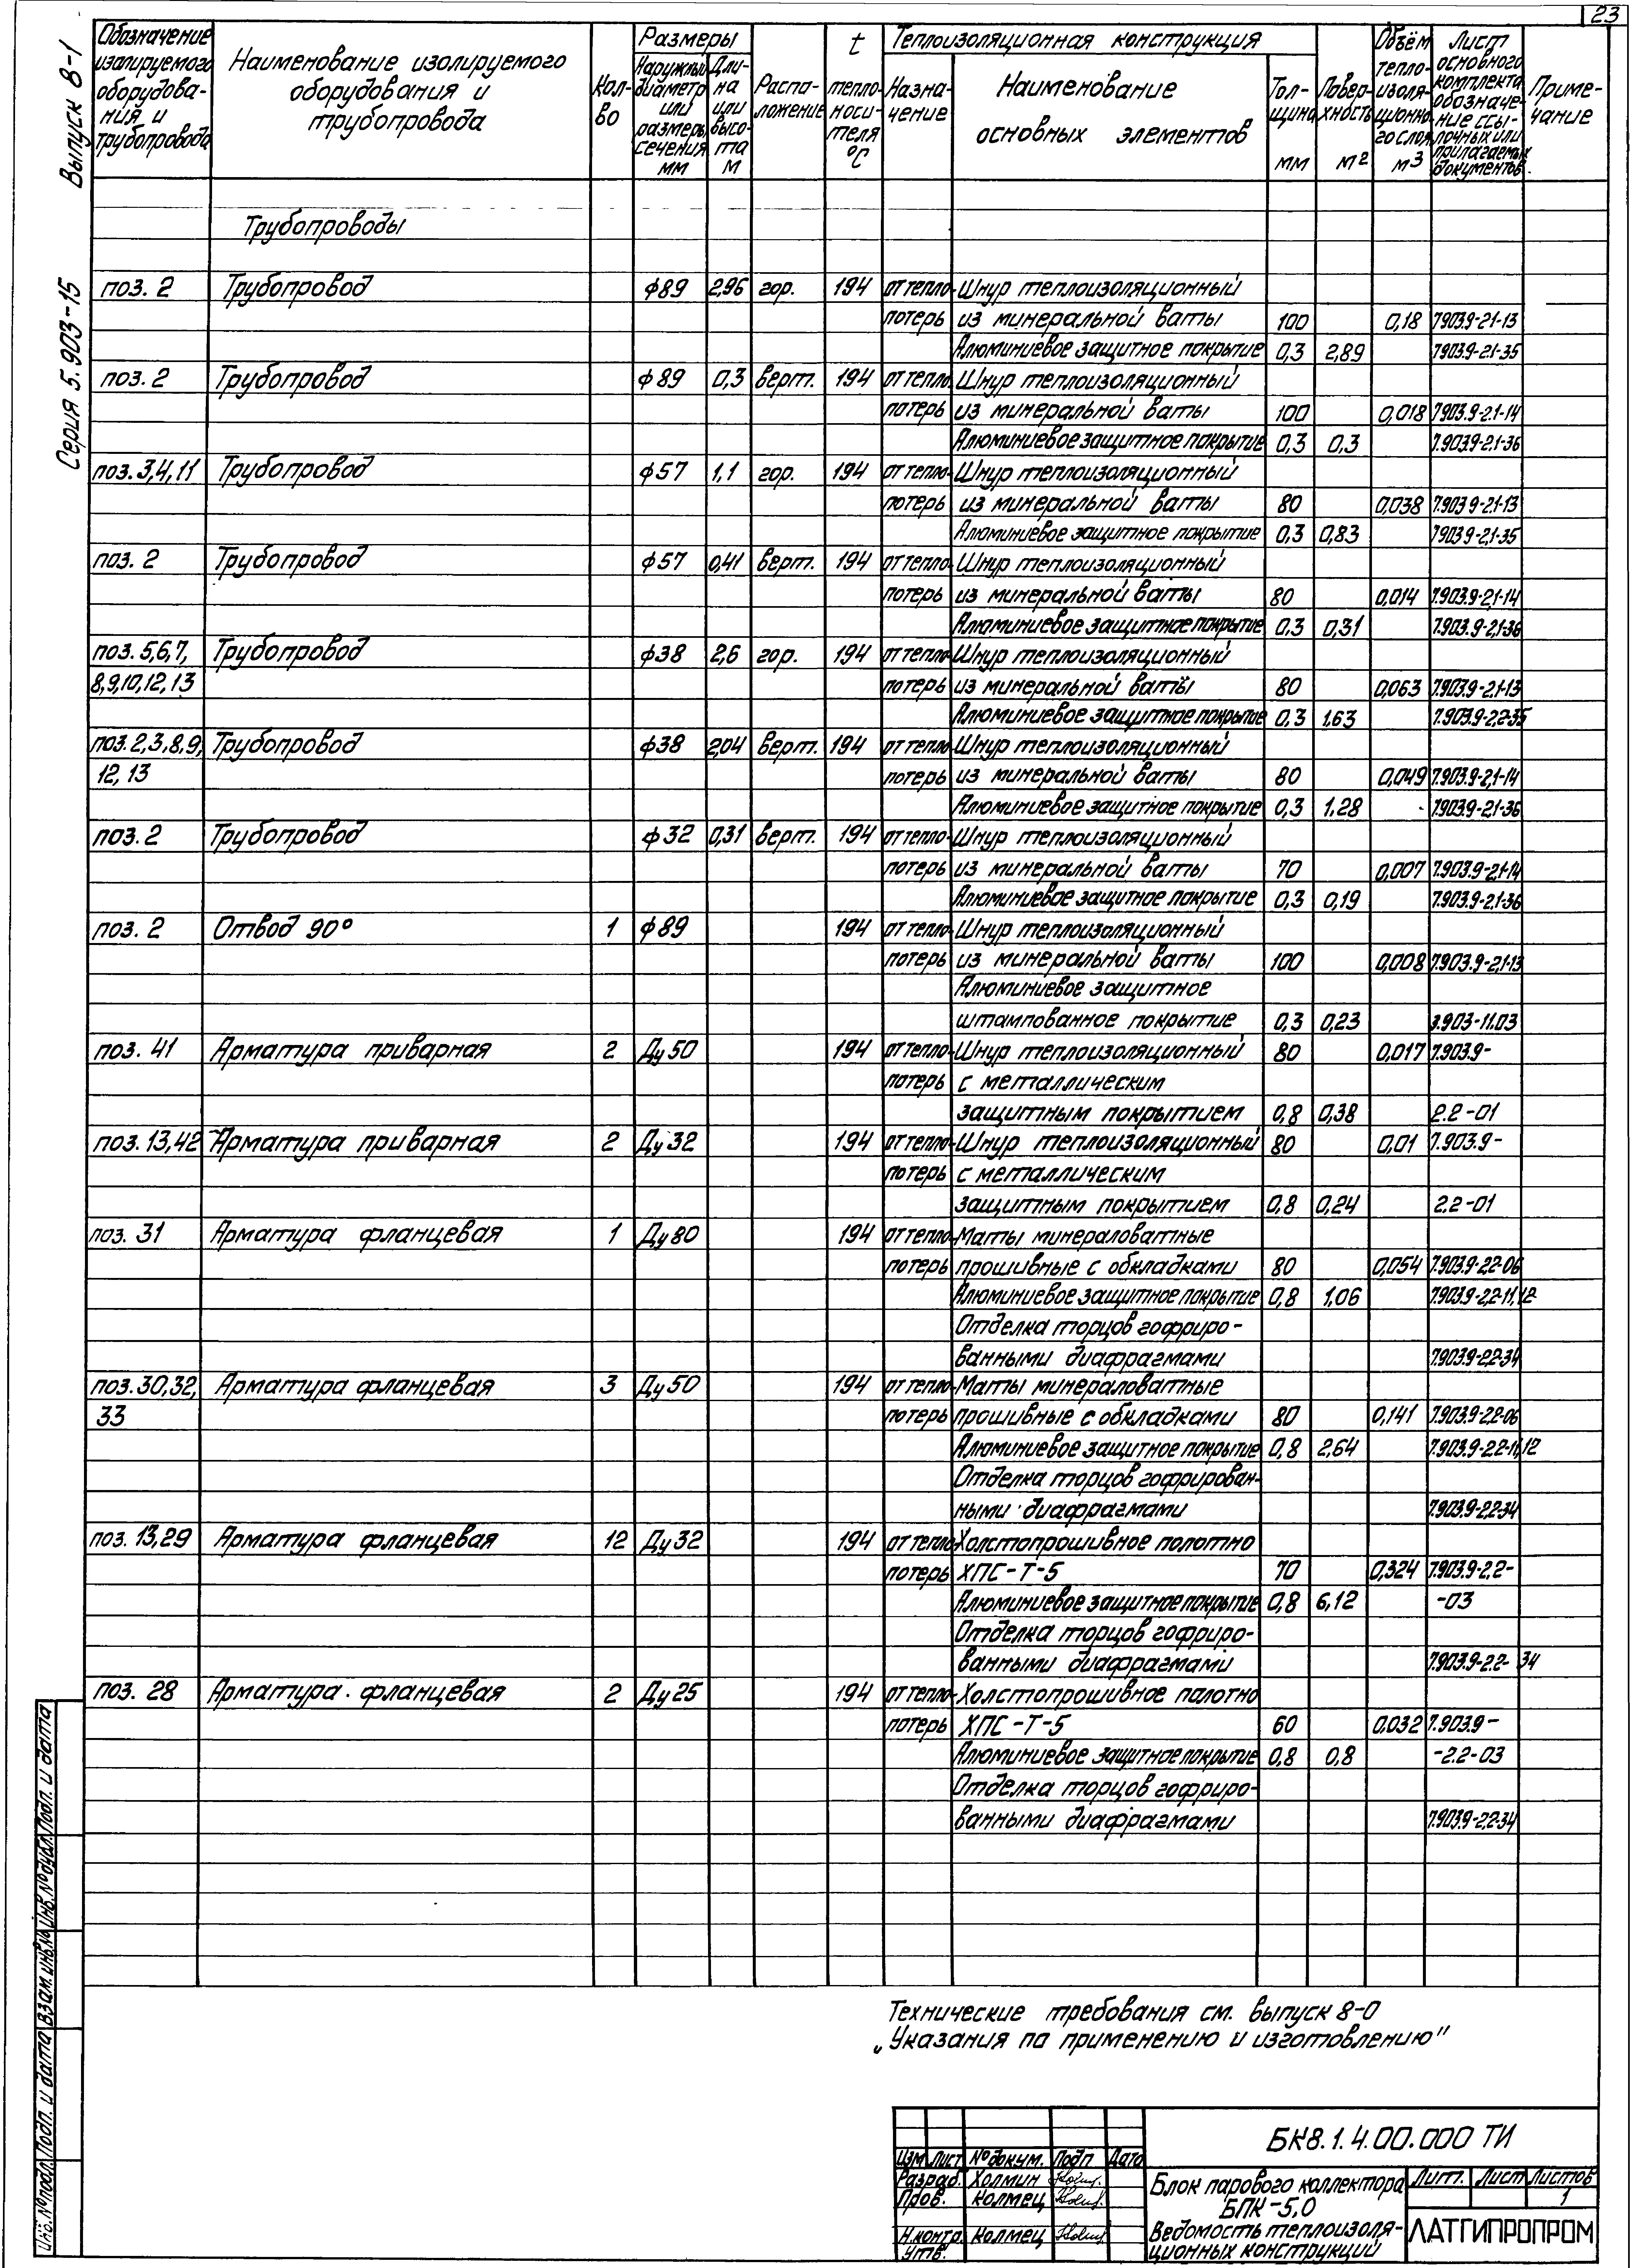 23
Серия 5.903-15 Выпуск 8-1
Обозначение изолируемого оборудования и трубопровода
Наименование изолируемого оборудования и трубопровода
Кол-во
Размеры
Наружный диаметр или размеры сечения мм
Длина или высота м
Расположение
t теплоносителя °С
Теплоизоляционная конструкция
Назначение
Наименование основных элементов
Толщина мм
Поверхность м2
Объём теплоизоляционного слоя м3
Лист основного комплекта обозначение ссылочных или прилагаемых документов
Примечание
Трубопроводы
поз. 2 Трубопровод ф89 2,96 гор. 194 от тепло- Шнур теплоизоляционный
потерь из минеральной ваты 100 0,18 7.903.9-2.1-13
Алюминиевое защитное покрытие 0,3 2,89 7.903.9-2.1-35
поз. 2 Трубопровод ф89 0,3 верт. 194 от тепло- Шнур теплоизоляционный
потерь из минеральной ваты 100 0,018 7.903.9-2.1-14
Алюминиевое защитное покрытие 0,3 0,3 7.903.9-2.1-36
поз. 3,4,11 Трубопровод ф57 1,1 гор. 194 от тепло- Шнур теплоизоляционный
потерь из минеральной ваты 80 0,038 7.903.9-2.1-13
Алюминиевое защитное покрытие 0,3 0,83 7.903.9-2.1-35
поз. 2 Трубопровод ф57 0,41 верт. 194 от тепло- Шнур теплоизоляционный
потерь из минеральной ваты 80 0,014 7.903.9-2.1-14
Алюминиевое защитное покрытие 0,3 0,31 7.903.9-2.1-36
поз. 5,6,7, Трубопровод ф38 2,6 гор. 194 от тепло- Шнур теплоизоляционный
8,9,10,12,13 потерь из минеральной ваты 80 0,063 7.903.9-2.1-13
Алюминиевое защитное покрытие 0,3 1,63 7.903.9-2.2-35
поз. 2,3,8,9, Трубопровод ф38 2,04 верт. 194 от тепло- Шнур теплоизоляционный
12, 13 потерь из минеральной ваты 80 0,049 7.903.9-2.1-14
Алюминиевое защитное покрытие 0,3 1,28 7.903.9-2.1-36
поз. 2 Трубопровод ф32 0,31 верт. 194 от тепло- Шнур теплоизоляционный
потерь из минеральной ваты 70 0,007 7.903.9-2.1-14
Алюминиевое защитное покрытие 0,3 0,19 7.903.9-2.1-36
поз. 2 Отвод 90° 1 ф89 194 от тепло- Шнур теплоизоляционный
потерь из минеральной ваты 100 0,008 7.903.9-2.1-13
Алюминиевое защитное
штампованное покрытие 0,3 0,23 3.903-11.03
поз. 41 Арматура приварная 2 Ду50 194 от тепло- Шнур теплоизоляционный 80 0,017 7.903.9-
потерь с металлическим
защитным покрытием 0,8 0,38 2.2-01
поз. 13,42 Арматура приварная 2 Ду32 194 от тепло- Шнур теплоизоляционный 80 0,01 7.903.9-
потерь с металлическим
защитным покрытием 0,8 0,24 2.2-01
поз. 31 Арматура фланцевая 1 Ду80 194 от тепло- Маты минераловатные
потерь прошивные с обкладками 80 0,054 7.903.9-2.2-06
Алюминиевое защитное покрытие 0,8 1,06 7.903.9-2.2-11,12
Отделка торцов гофриро-
ванными диафрагмами 7.903.9-2.2-34
поз. 30,32, Арматура фланцевая 3 Ду50 194 от тепло- Маты минераловатные
33 потерь прошивные с обкладками 80 0,141 7.903.9-2.2-06
Алюминиевое защитное покрытие 0,8 2,64 7.903.9-2.2-11,12
Отделка торцов гофрирован-
ными диафрагмами 7.903.9-2.2-34
поз. 13,29 Арматура фланцевая 12 Ду32 194 от тепло- Холстопрошивное полотно
потерь ХПС-Т-5 70 0,324 7.903.9-2.2-
Алюминиевое защитное покрытие 0,8 6,12 -03
Отделка торцов гофриро-
ванными диафрагмами 7.903.9-2.2-34
поз. 28 Арматура фланцевая 2 Ду25 194 от тепло- Холстопрошивное полотно
потерь ХПС-Т-5 60 0,032 7.903.9-
Алюминиевое защитное покрытие 0,8 0,8 -2.2-03
Отделка торцов гофриро-
ванными диафрагмами 7.903.9-2.2-34
Технические требования см. выпуск 8-0
„Указания по применению и изготовлению"
Инв. № подл. Подп. и дата Взам. инв. № Инв. № дубл. Подп. и дата
БК8.1.4.00.000 ТИ
Изм Лист № докум. Подп Дата
Разраб. Холмин
Пров. Колмец
Н.контр. Колмец
Утв.
Блок парового коллектора
БПК-5,0
Ведомость теплоизоля-
ционных конструкций
Лит. Лист Листов
1
ЛАТГИПРОПРОМ